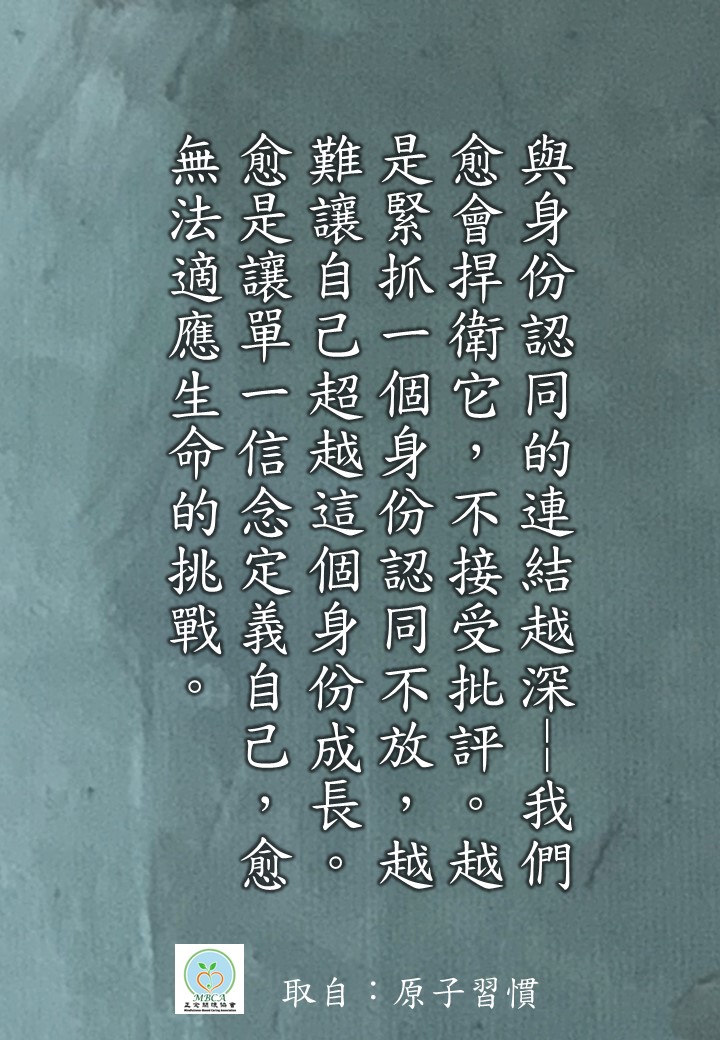 與身份認同的連結越深--我們
愈會捍衛它，不接受批評。越
是緊抓一個身份認同不放，越
難讓自己超越這個身份成長。
愈是讓單一信念定義自己，愈
無法適應生命的挑戰。
MBCA
正念關懷協會
Mindfulness-Based Caring Association
取自：原子習慣